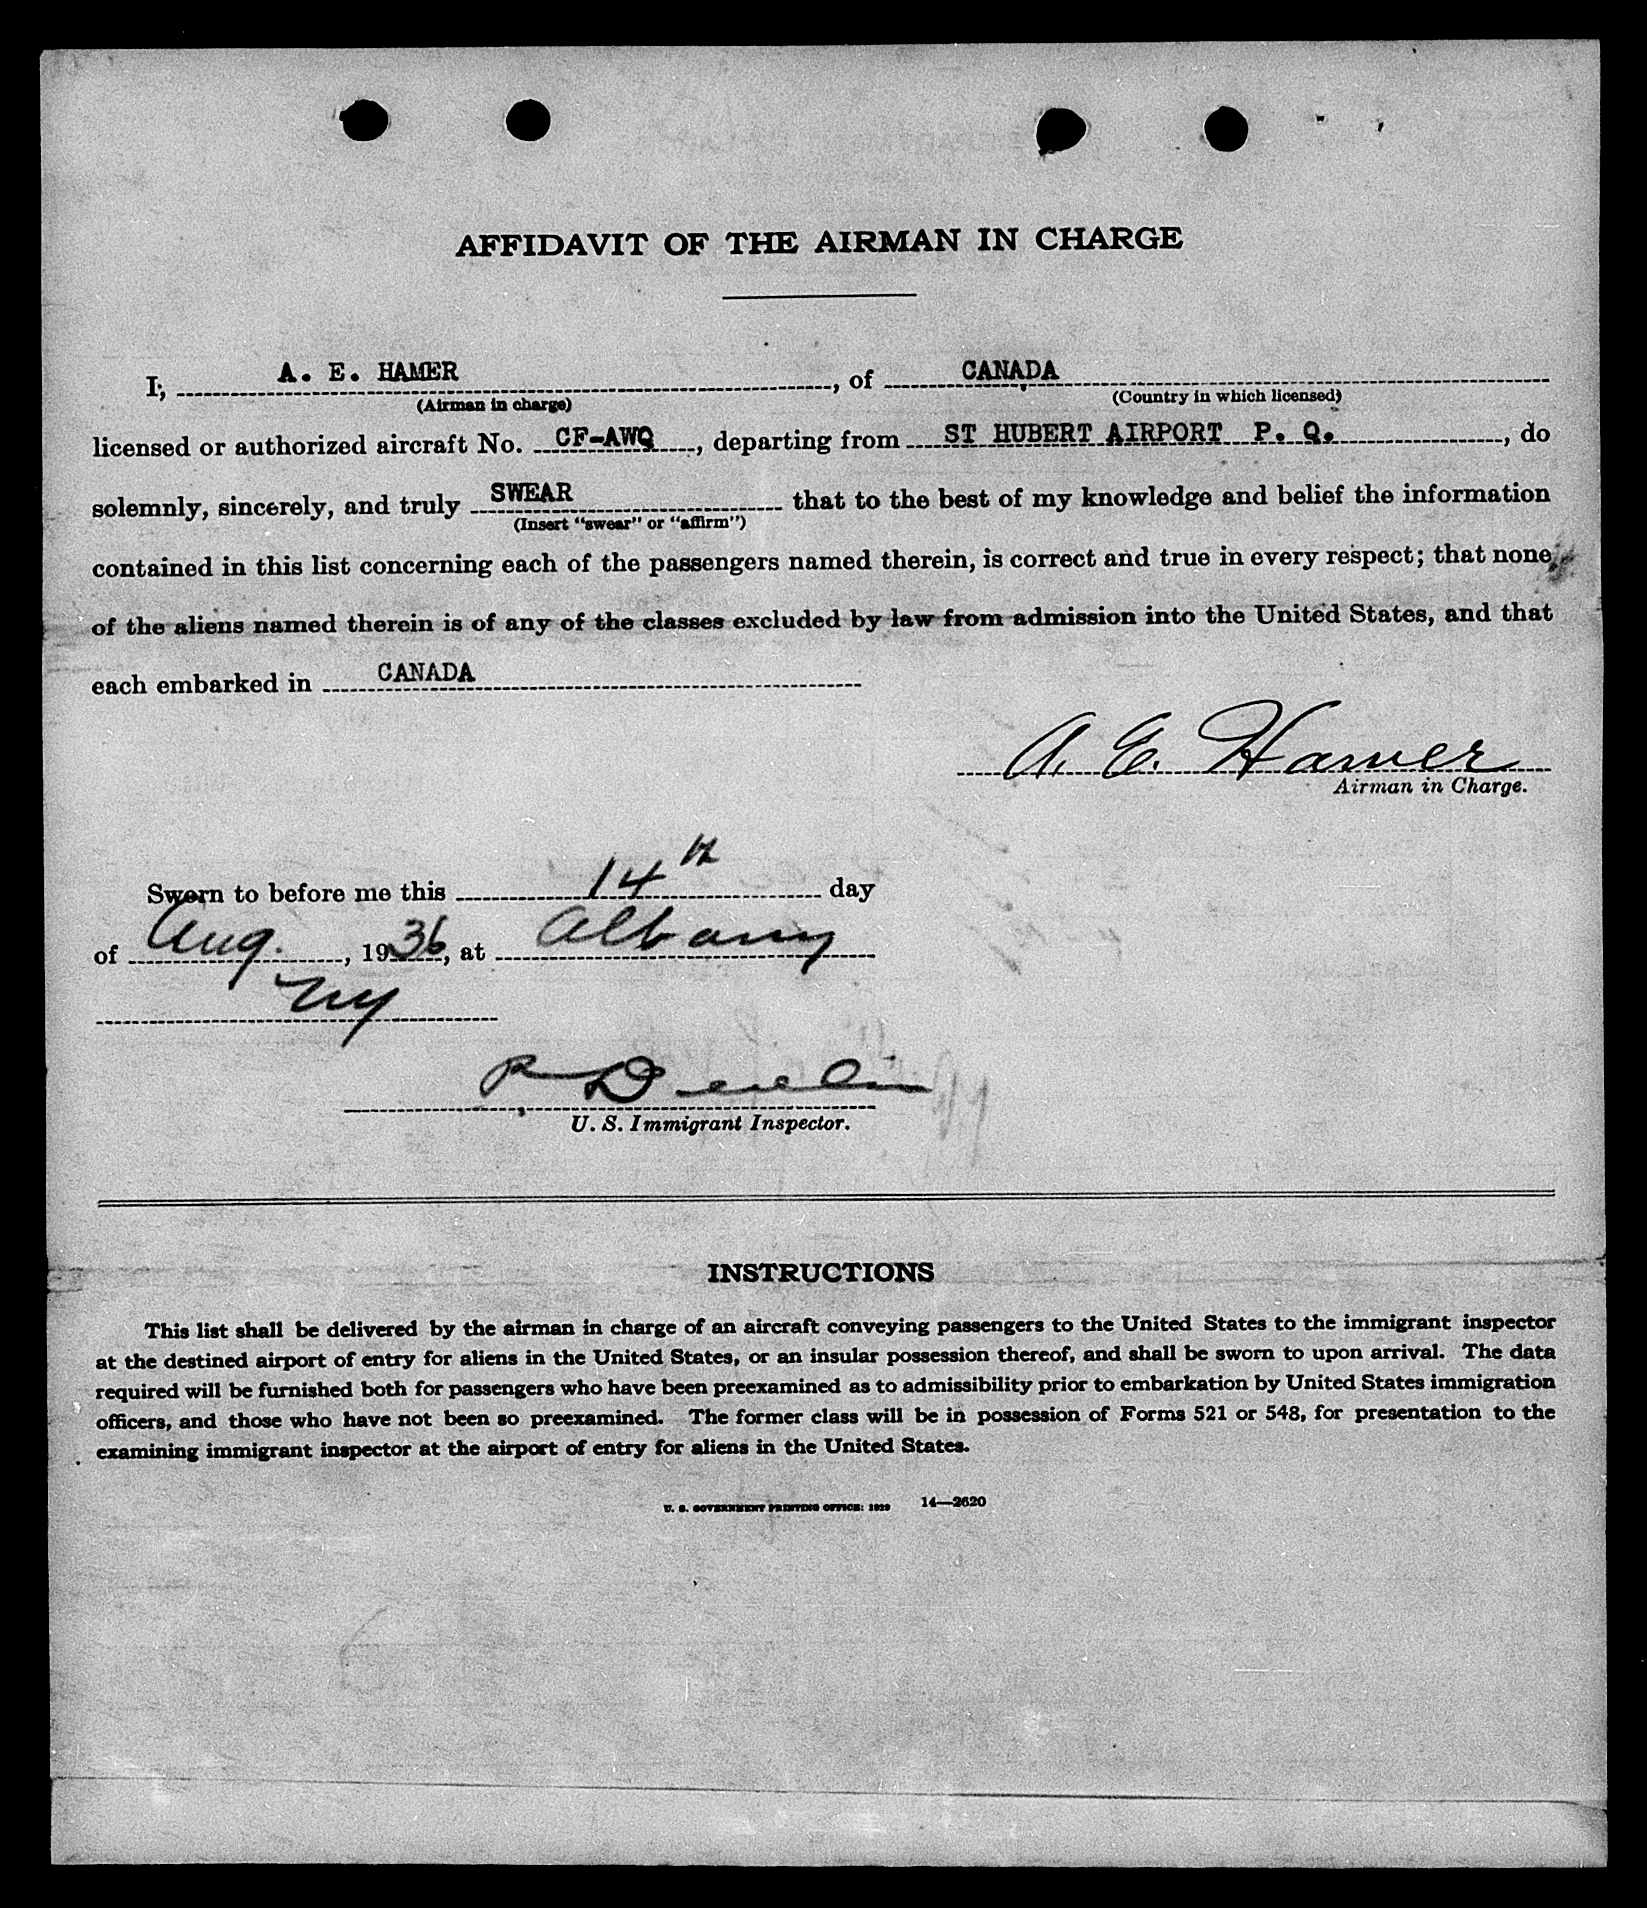 AFFIDAVIT OF THE AIRMAN IN CHARGE
I, A. E. HAMER, of CANADA
(Airman in charge) (Country in which licensed)
licensed or authorized aircraft No. CF-AWQ, departing from ST HUBERT AIRPORT P. Q., do
solemnly, sincerely, and truly SWEAR that to the best of my knowledge and belief the information
(Insert "swear" or "affirm")
contained in this list concerning each of the passengers named therein, is correct and true in every respect; that none
of the aliens named therein is of any of the classes excluded by law from admission into the United States, and that
each embarked in CANADA
A. E. Hamer
Airman in Charge.
Sworn to before me this 14th day
of Aug., 1936, at Albany
NY
U. S. Immigrant Inspector.
INSTRUCTIONS
This list shall be delivered by the airman in charge of an aircraft conveying passengers to the United States to the immigrant inspector
at the destined airport of entry for aliens in the United States, or an insular possession thereof, and shall be sworn to upon arrival. The data
required will be furnished both for passengers who have been preexamined as to admissibility prior to embarkation by United States immigration
officers, and those who have not been so preexamined. The former class will be in possession of Forms 521 or 548, for presentation to the
examining immigrant inspector at the airport of entry for aliens in the United States.
U. S. GOVERNMENT PRINTING OFFICE: 1929 14—2620